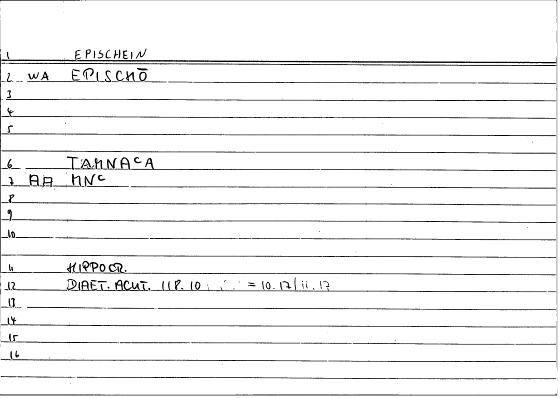 1 EPISCHEIN
2 WA EPISCHŌ
3
4
5
6 TAMNACA
7 AA MNC
8
9
10
11 HIPPOCR.
12 DIAET. ACUT. 11P. 10 = 10.17/11.17
13
14
15
16